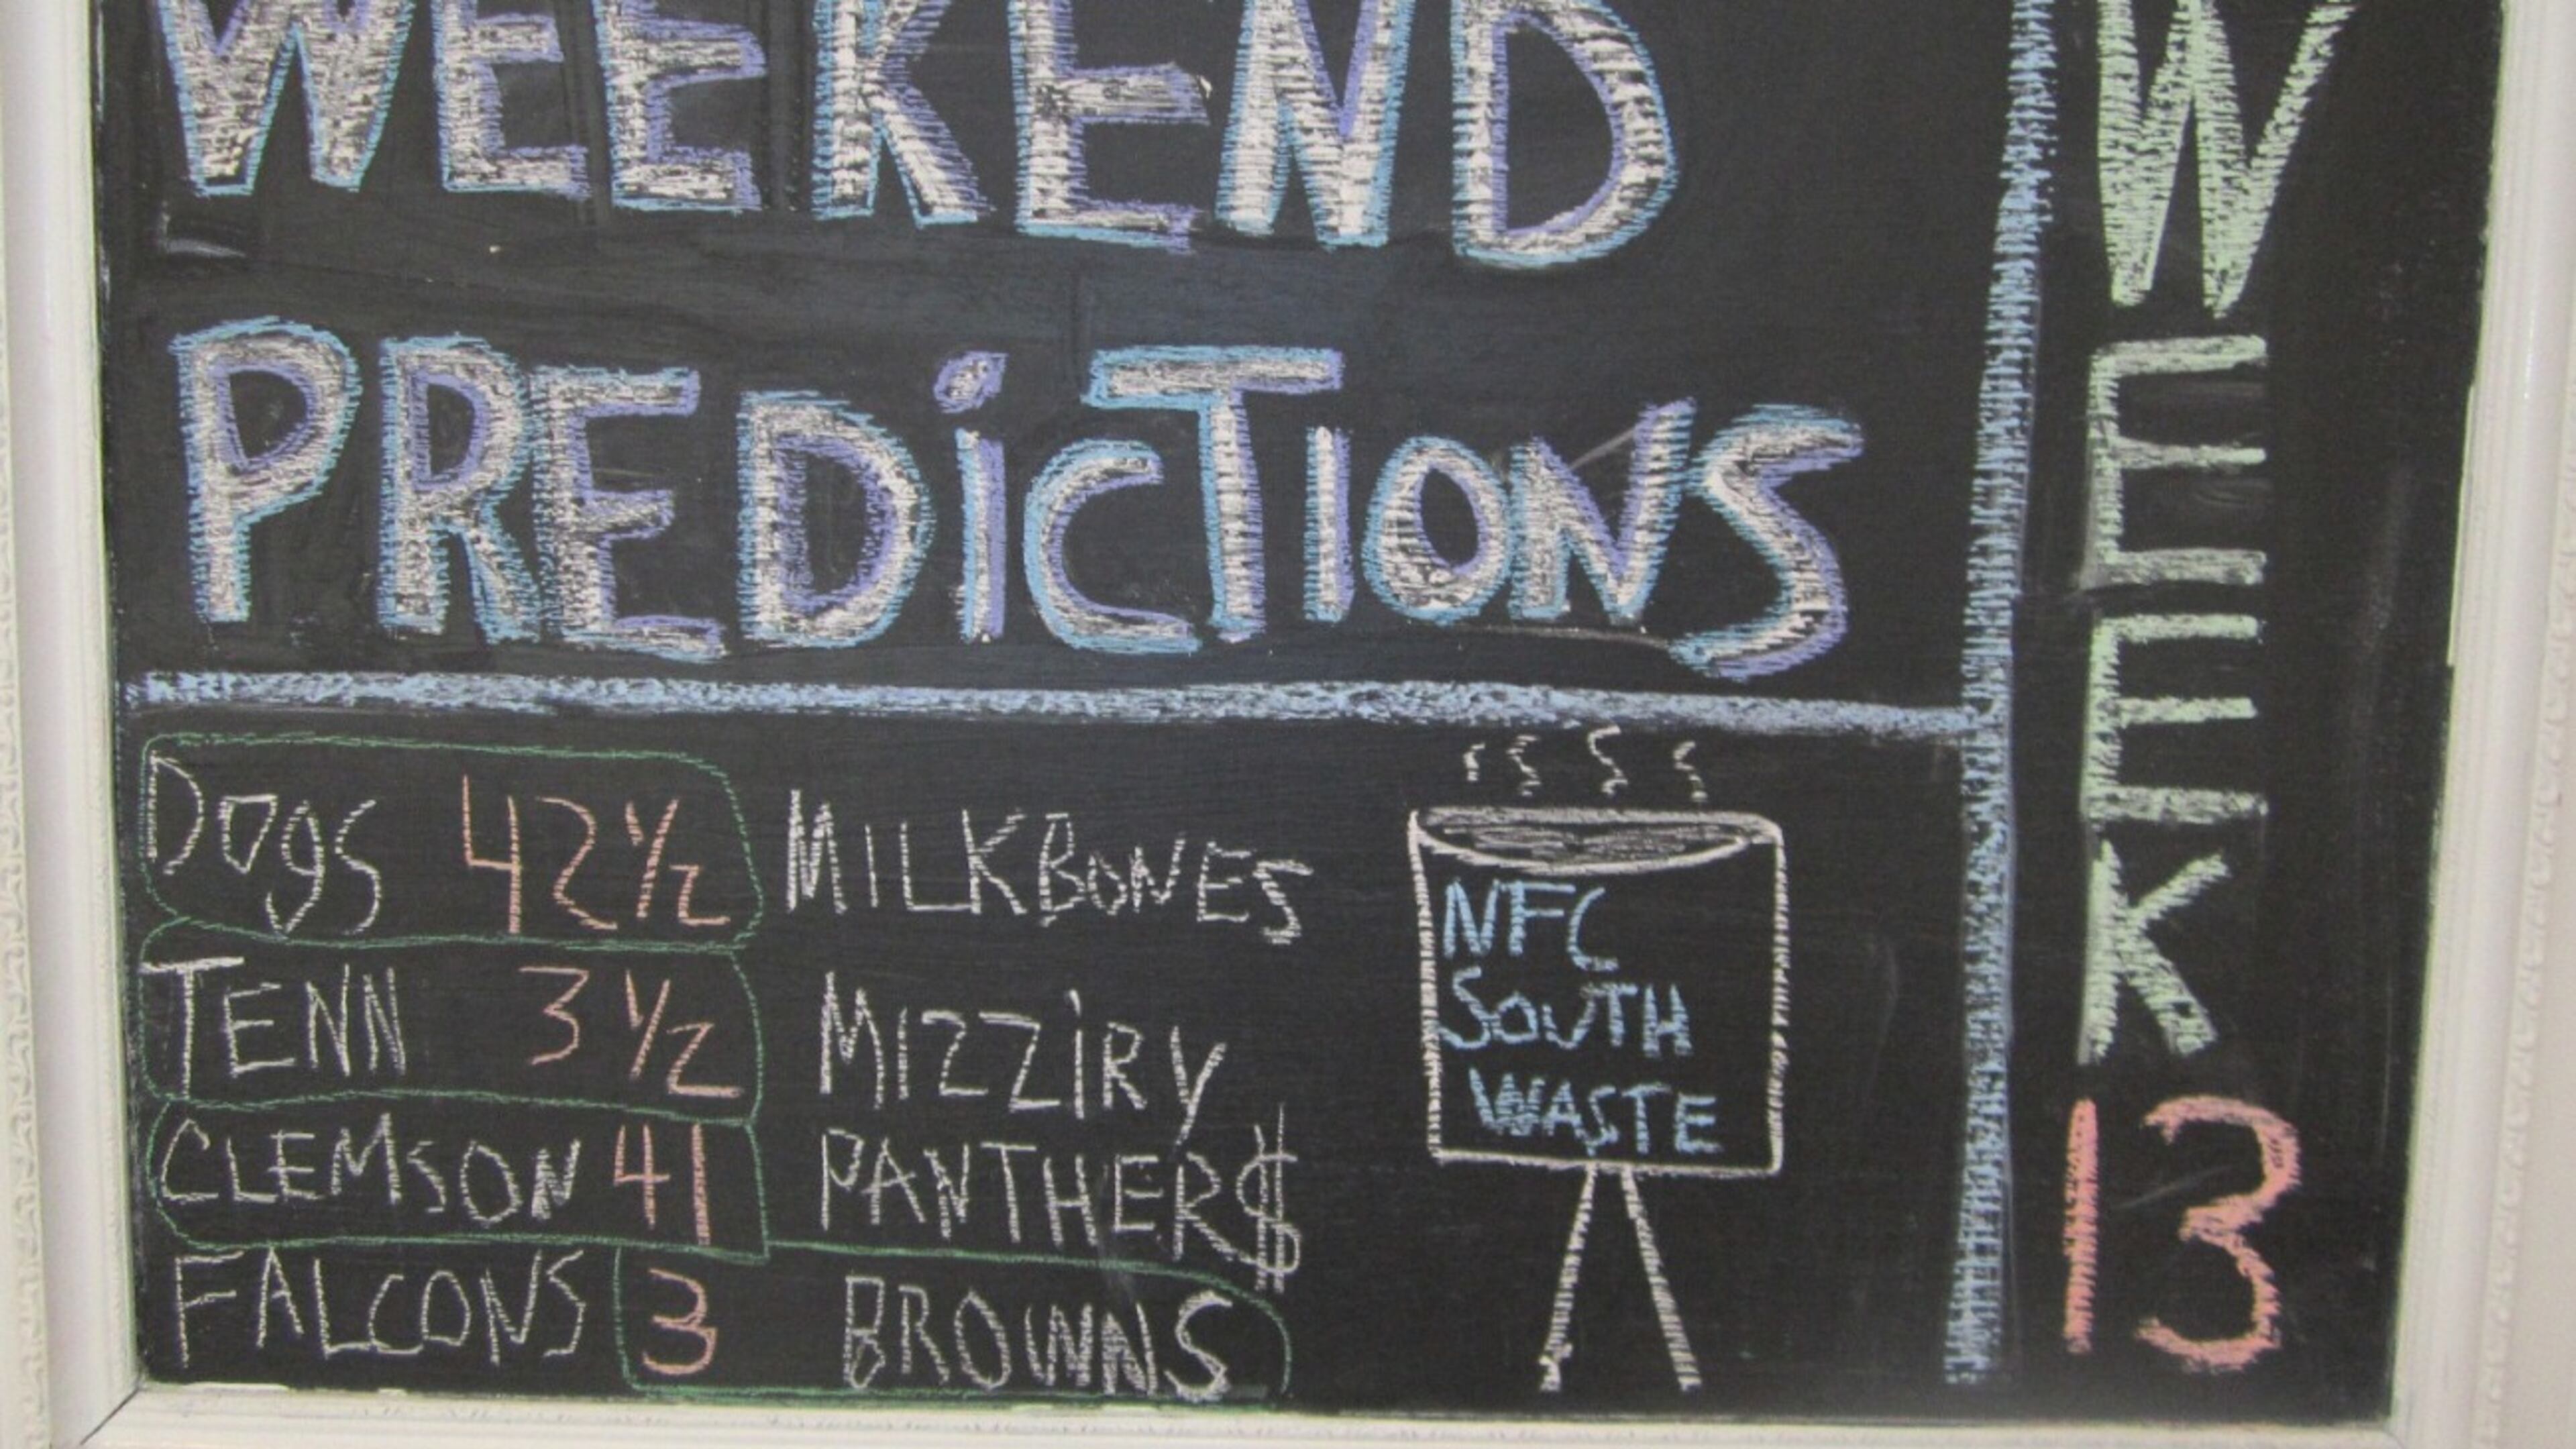 WEEKEND
PREDiCTIONS
DogS 42 1/2 MILKBONES
TENN 3 1/2 MIZZiRy
CLEMSON 41 PANTHER$
FALCONS 3 BROWNS
NFC
SOUTH
WASTE
WEEK
13